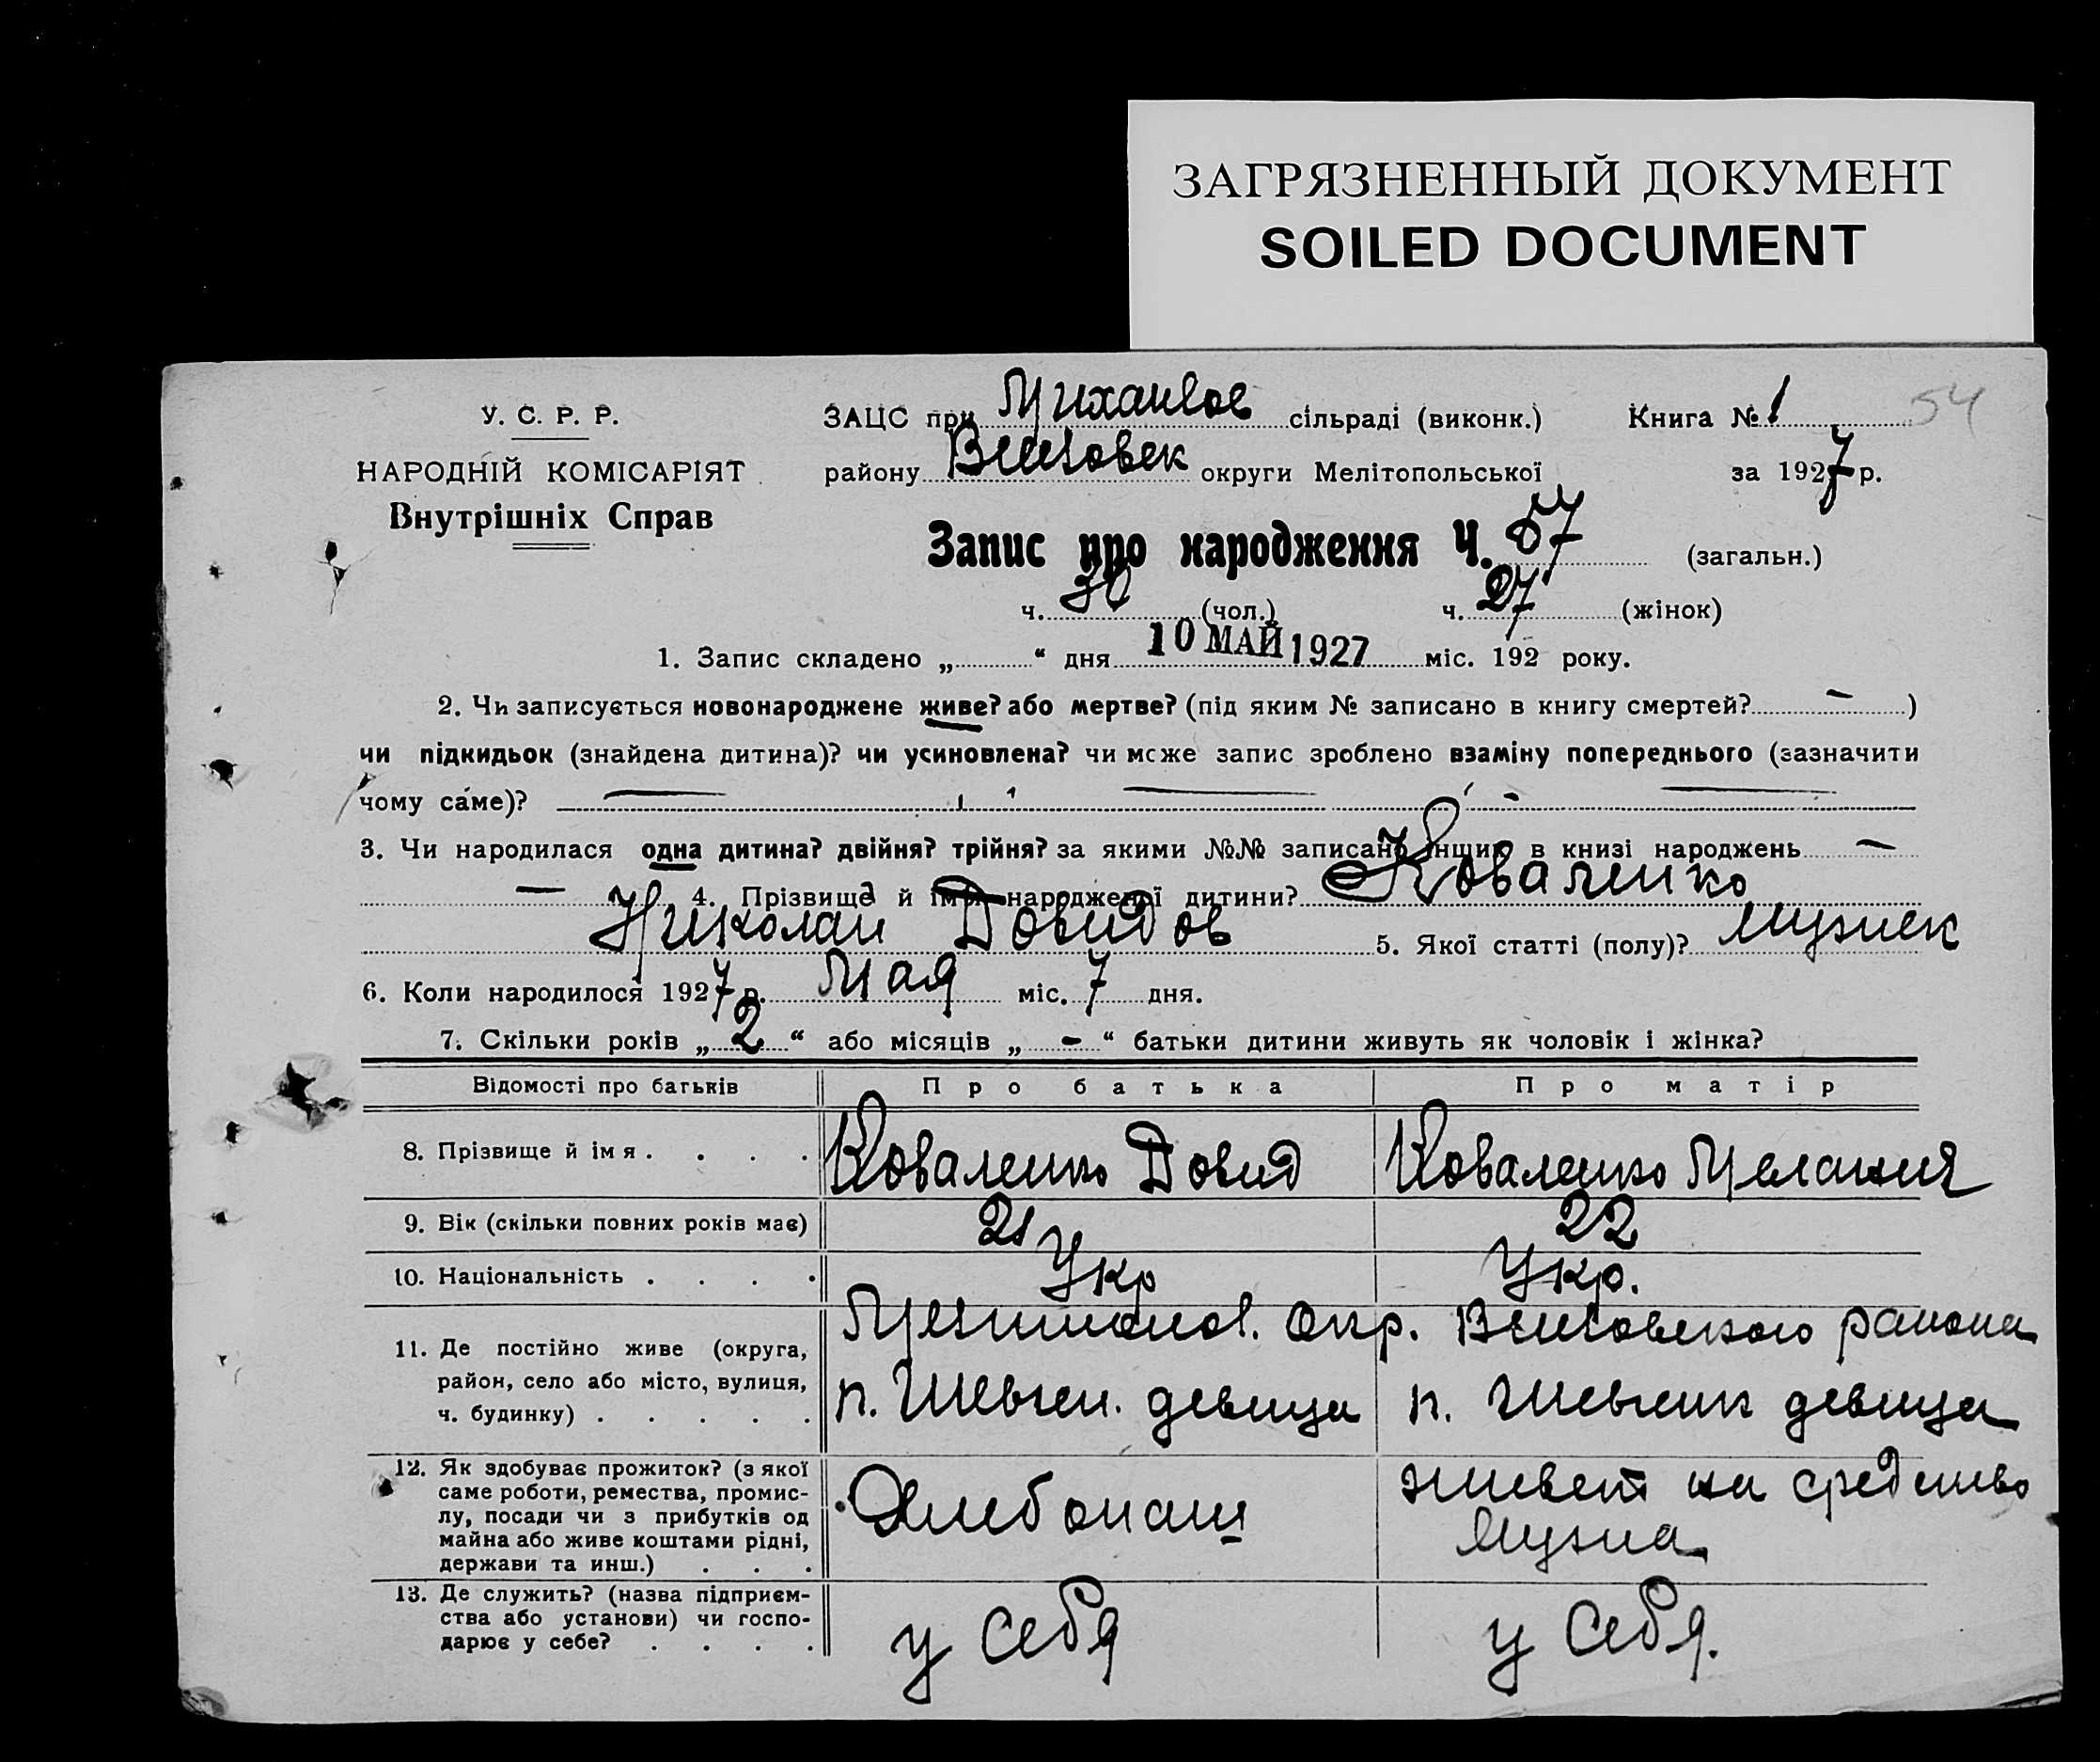 ЗАГРЯЗНЕННЫЙ ДОКУМЕНТ
SOILED DOCUMENT
У. С. Р. Р.
НАРОДНІЙ КОМІСАРІЯТ
Внутрішніх Справ
ЗАЦС при Михайлов сільраді (виконк.) Книга № 1 54
району округи Мелітопольської за 1927 р.
Запис про народження Ч. 57 (загальн.)
ч. 30 (чол.) ч. 27 (жінок)
1. Запис складено „ “ дня 10 МАЙ 1927 міс. 192 року.
2. Чи записується новонароджене живе? або мертве? (під яким № записано в книгу смертей? — )
чи підкидьок (знайдена дитина)? чи усиновлена? чи може запис зроблено взаміну попереднього (зазначити
чому саме)?
3. Чи народилася одна дитина? двійня? трійня? за якими №№ записано інших в книзі народжень —
— 4. Прізвище й ім'я народженої дитини? Коваленко
Николай Довидов 5. Якої статті (полу)? мужск
6. Коли народилося 1927 р. Мая міс. 7 дня.
7. Скільки років „ 2 “ або місяців „ - “ батьки дитини живуть як чоловік і жінка?
Відомості про батьків Про батька Про матір
8. Прізвище й імя . . . . Коваленко Довид Коваленко Мелания
9. Вік (скільки повних років має) 21 22
10. Національність . . . . Укр Укр.
11. Де постійно живе (округа, район, село або місто, вулиця, ч. будинку) . . . . . Мелитопол. Окр. района
п. Шевчен. девица п. Шевченк девица
12. Як здобуває прожиток? (з якої саме роботи, ремества, промислу, посади чи з прибутків од майна або живе коштами рідні, держави та инш.) . . . Хлебопаш живет на средство
мужа
13. Де служить? (назва підприємства або установи) чи господарює у себе? . . . . у себя у себя.